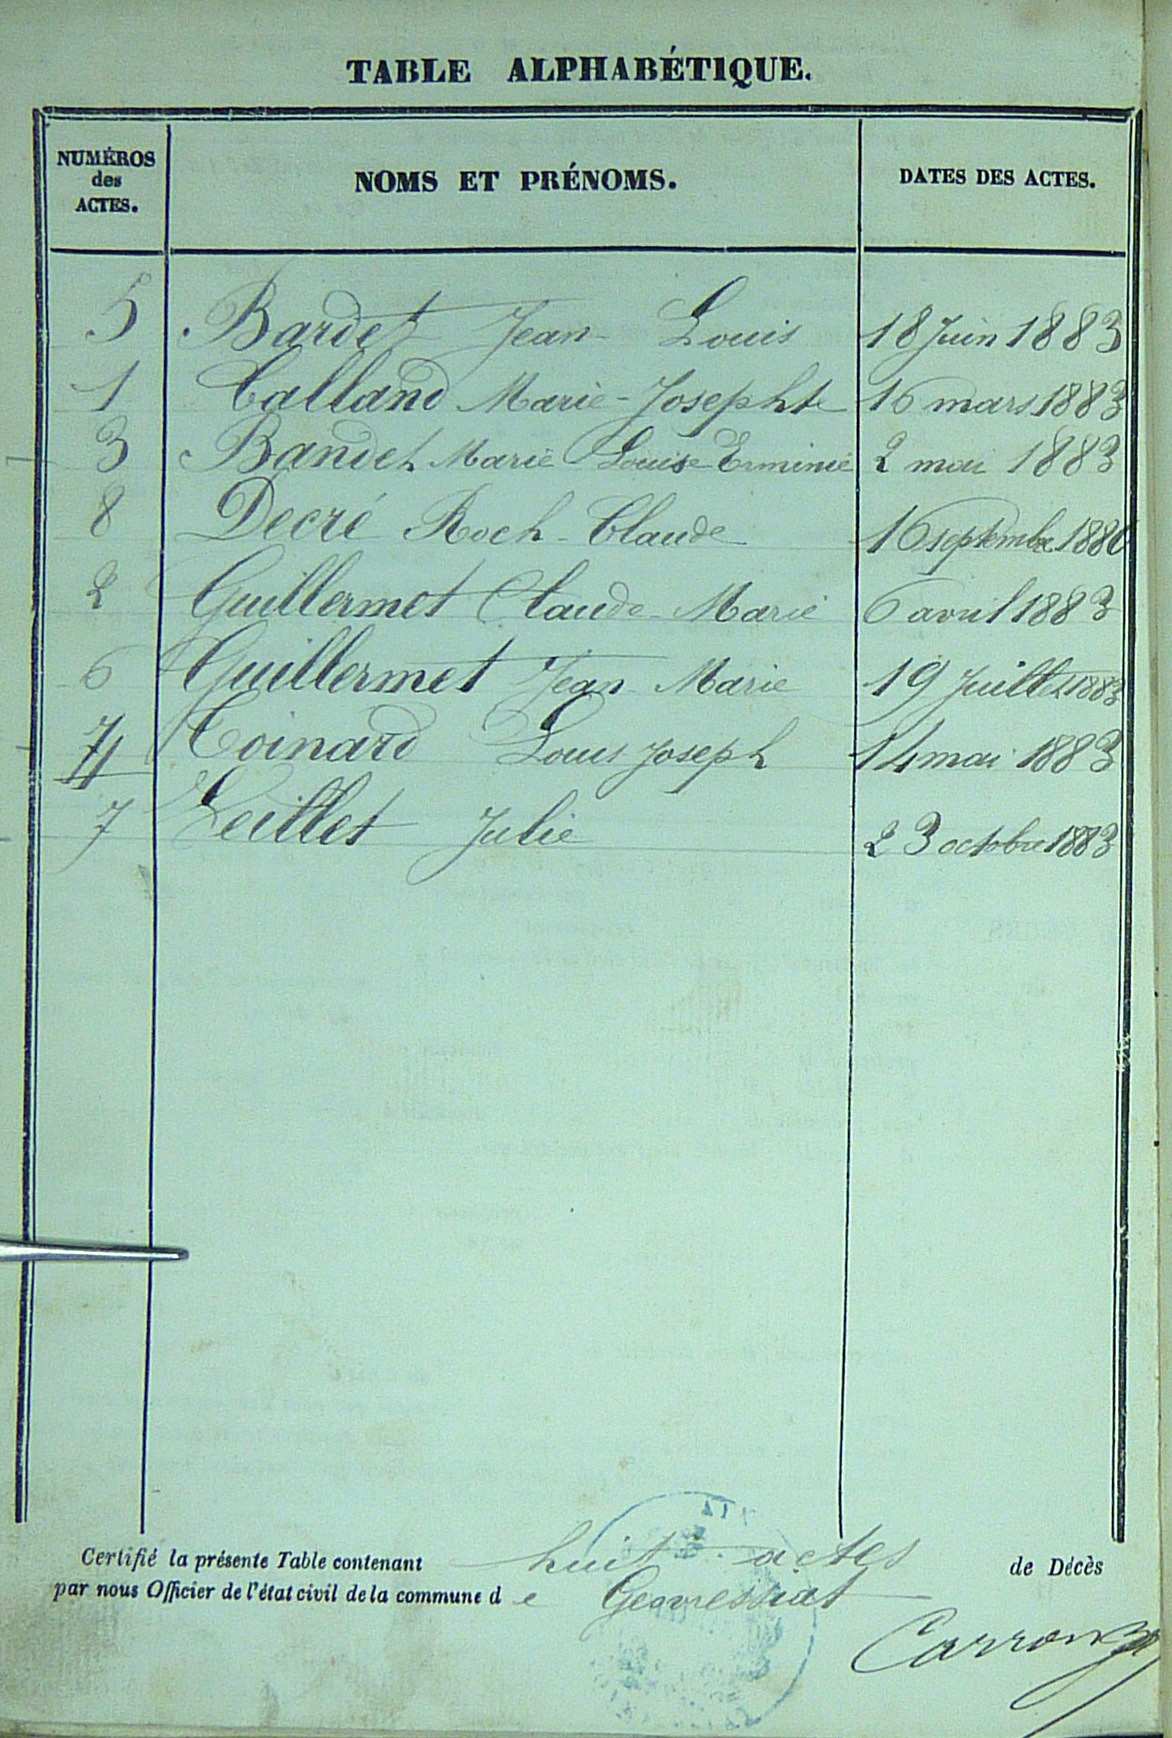 TABLE ALPHABÉTIQUE.
NUMÉROS des ACTES. NOMS ET PRÉNOMS. DATES DES ACTES.
5 Bardet Jean Louis 18 Juin 1883
1 Calland Marie-Josephte 16 mars 1883
3 Bandet Marie Louise Erminie 2 mai 1883
8 Decré Roch Claude 16 septembre
2 Guillermet Claude Marie 6 avril 1883
6 Guillermet Jean Marie 19 Juillet 1883
4 Coinard Louis Joseph 14 mai 1883
7 Veillet Julie 23 octobre 1883
Certifié la présente Table contenant huit actes de Décès
par nous Officier de l'état civil de la commune d e Geovressiat